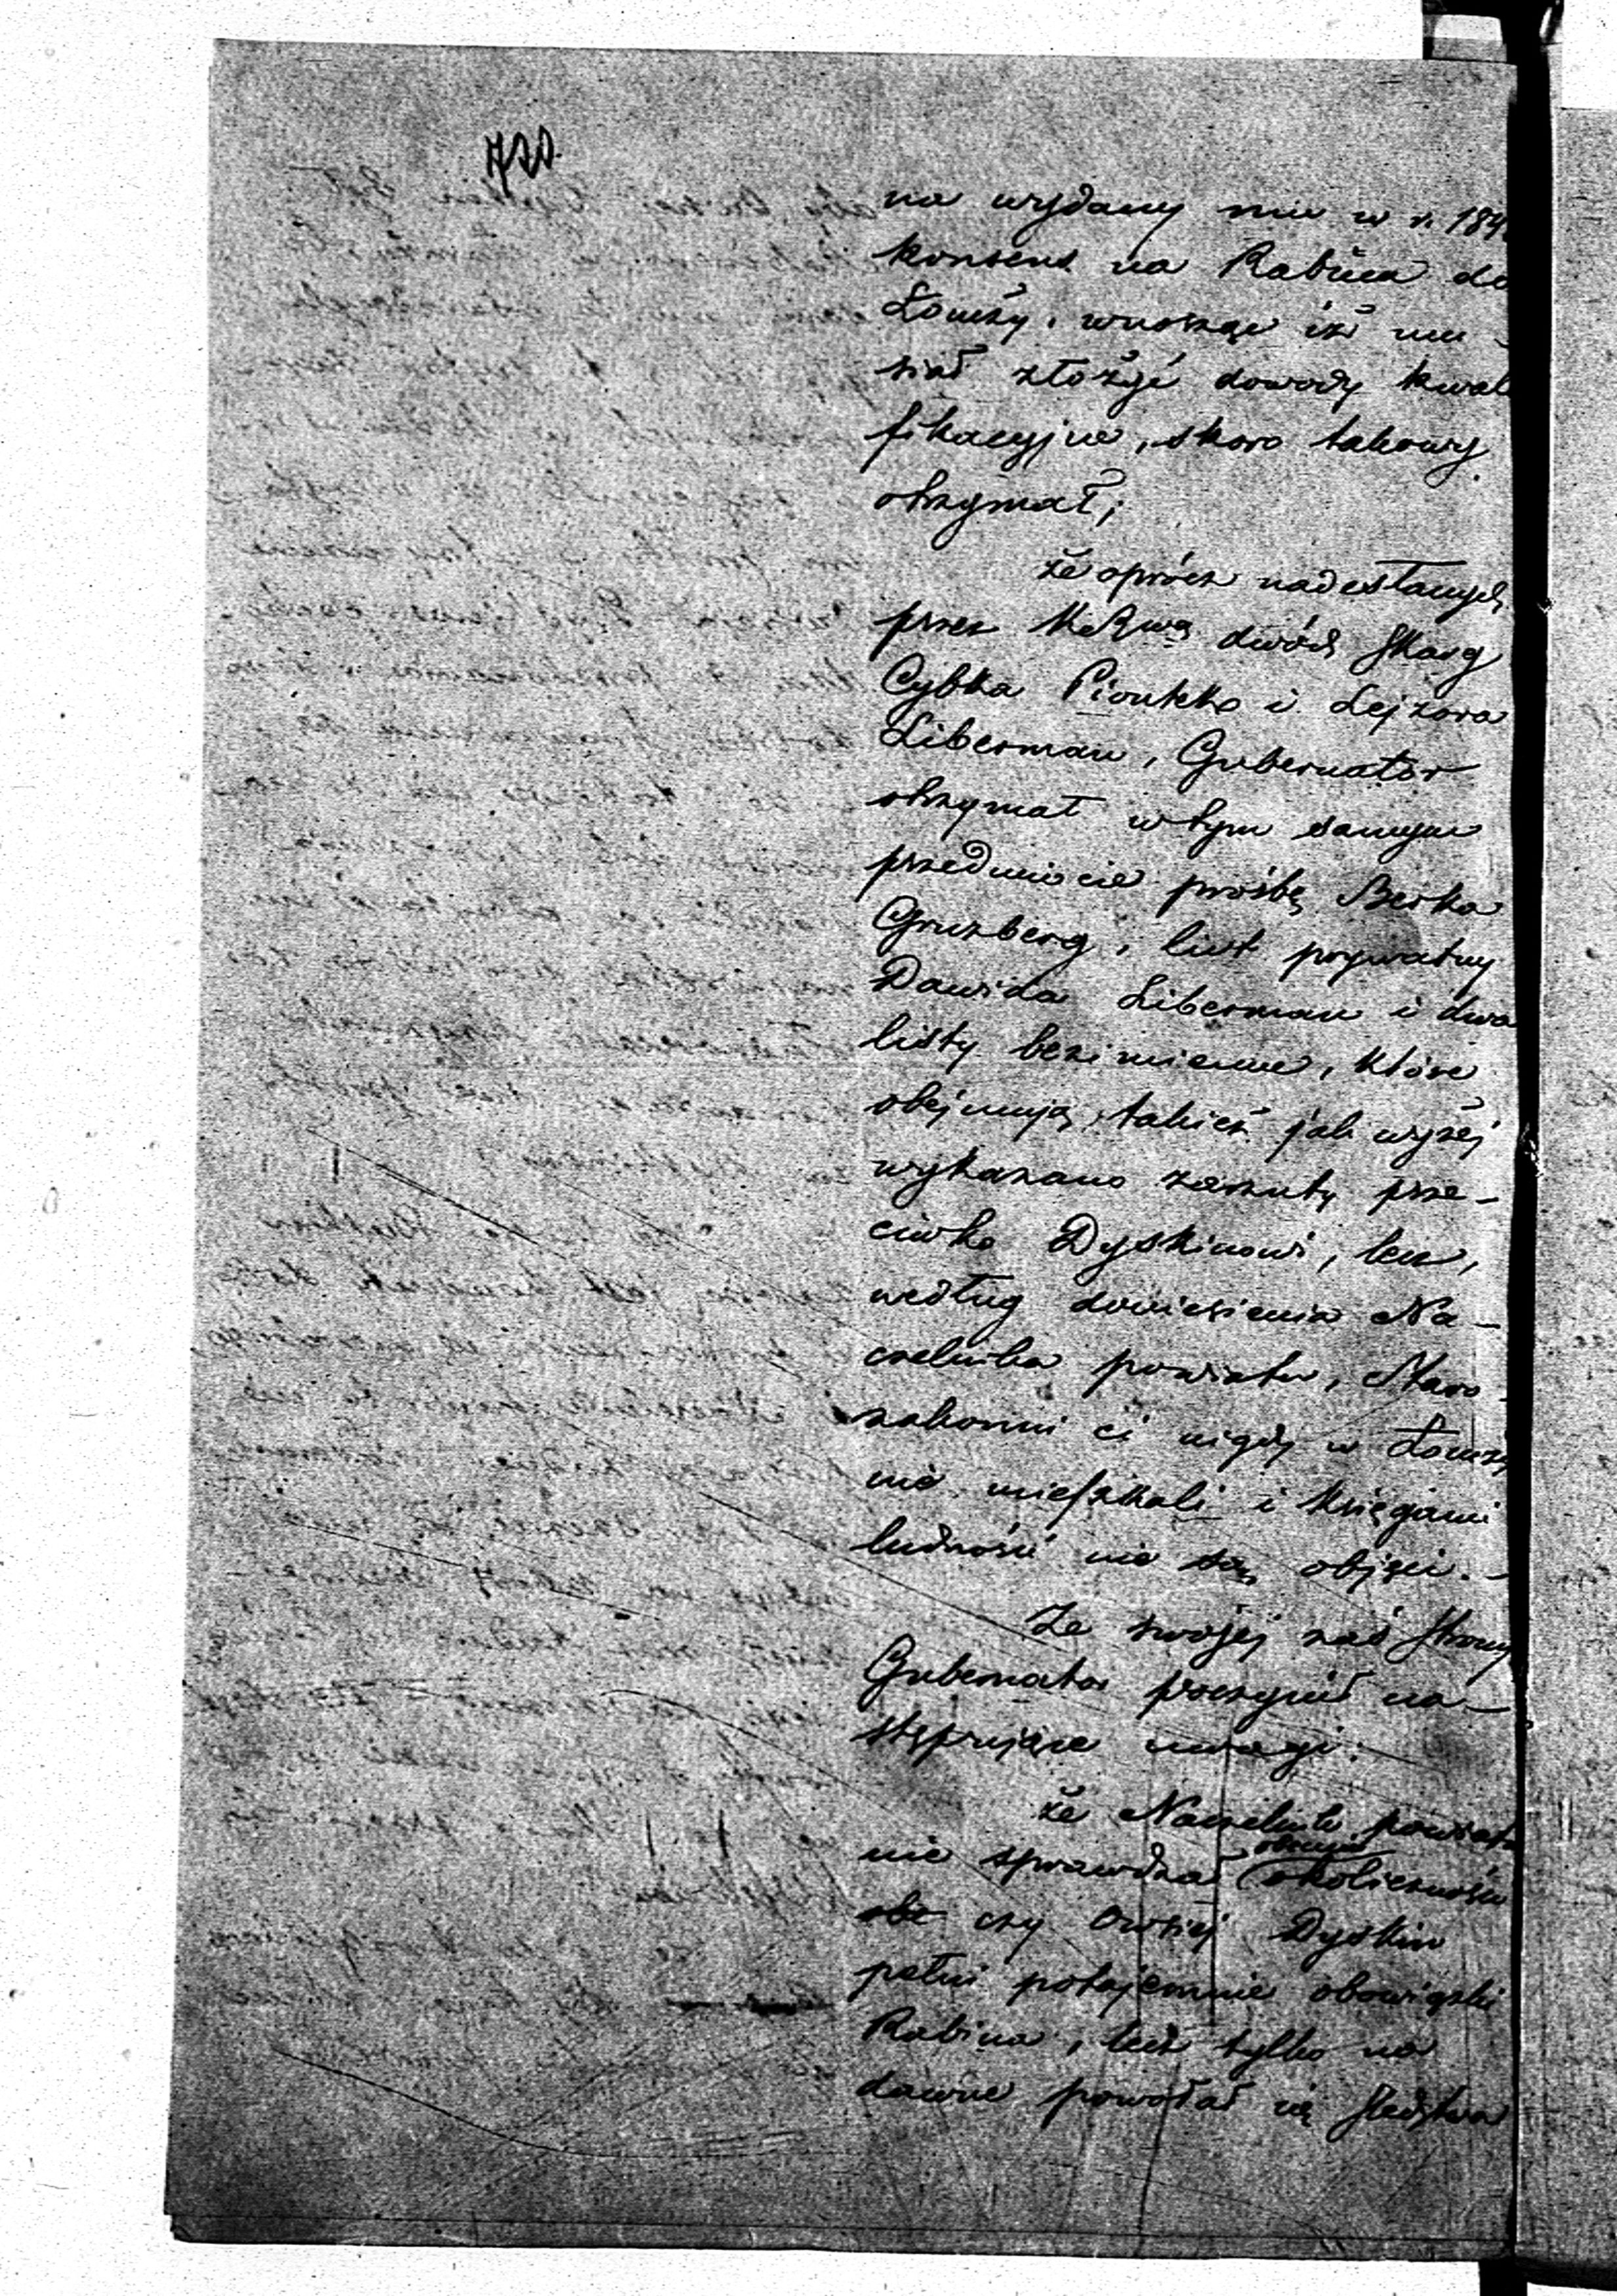 720.
na wydany mu w r. 184
konsens na Rabina do
Łomży, wnosząc iż mu-
siał złożyć dowody kwali
fikacyjne, skoro takowy
otrzymał;
że oprócz nadesłanych
przez KRząd dwóch skarg
Cybka Piontko i Lejzora
Liberman, Gubernator
otrzymał w tym samym
przedmiocie prośbę Berka
Grunberg, list prywatny
Dawida Liberman i dwa
listy bezimienne, które
obejmują takież jak wyżej
wykazano zarzuty prze-
ciwko Dyskinowi, lecz,
według doniesienia Na-
czelnika powiatu, Staro-
zakonni ci nigdy w Łomży
nie mieszkali i księgami
ludności nie są objęci. -
Ze swojej zaś strony
Gubernator poczynił na-
stępujące uwagi:
że Naczelnik powiatu
nie sprawdzał okoliczności
czy Owsiej Dyskin
pełni potajemnie obowiązki
Rabina, lecz tylko na
dawne powołał się śledztwa